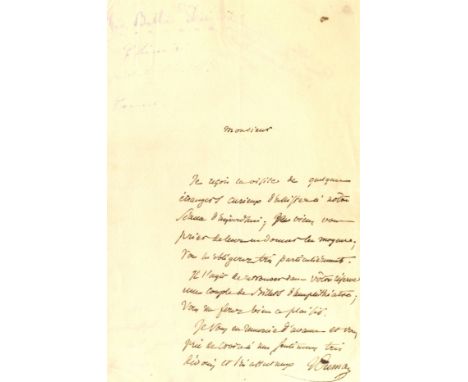 Monsieur
Je reçois la visite de quelques
étrangers curieux d'assister à notre
séance d'aujourd'hui; je viens vous
prier de leur en donner les moyens,
vous m'obligerez très particulièrement.
Il s'agit de retrouver dans votre
une couple de Billets d'amphithéâtre;
Vous me ferez bien ce plaisir.
Je vous en remercie d'avance et vous
prie de croire à mes sentimens très
dévoués et bien affectueux